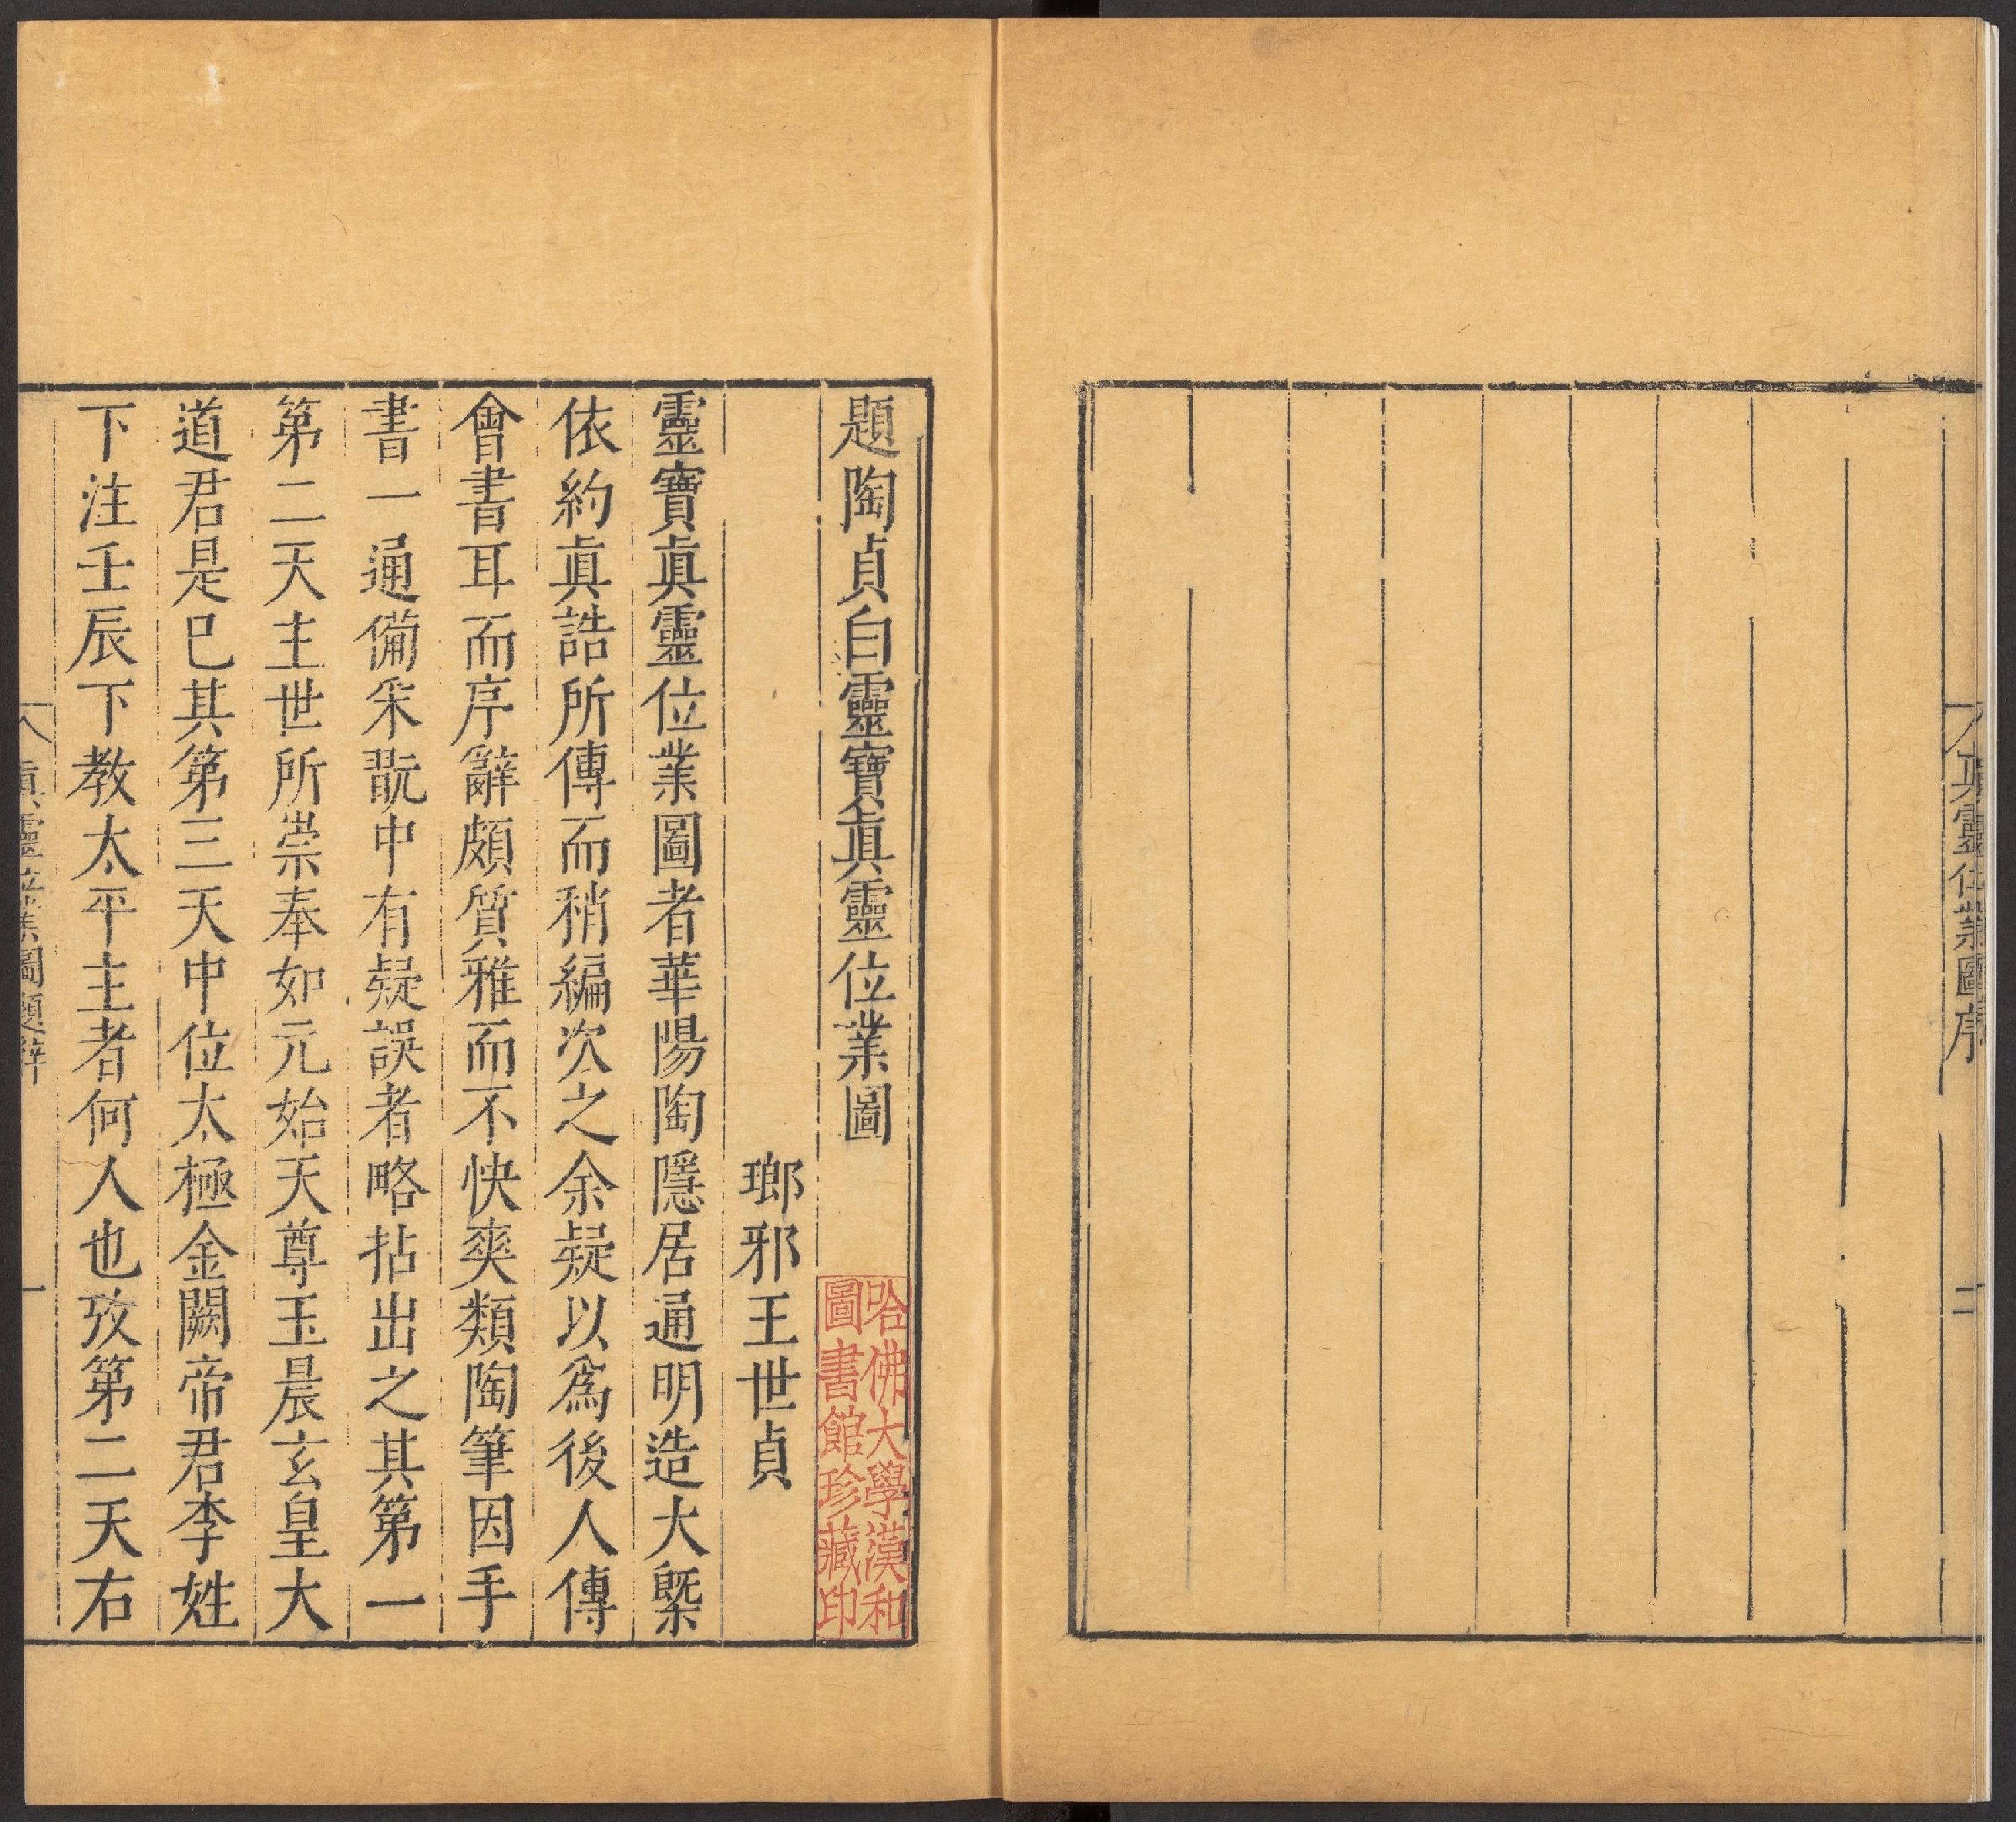 真靈位業圖序
二
題陶貞白靈寶眞靈位業圖
哈佛大學漢和
圖書館珍藏印
瑯邪王世貞
靈寶眞靈位業圖者華陽陶隱居通明造大槩
依約眞誥所傳而稍編次之余疑以爲後人傳
會書耳而序辭頗質雅而不快爽類陶筆因手
書一通備釆翫中有疑誤者略拈出之其第一
第二天主世所崇奉如元始天尊玉晨玄皇大
道君是已其第三天中位太極金闕帝君李姓
下注壬辰下教太平主者何人也攷第二天右
眞靈位業圖題辭
一